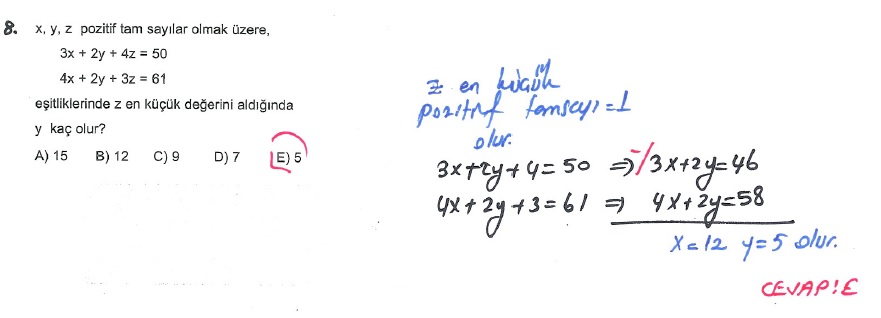 8. x, y, z pozitif tam sayılar olmak üzere,
3x + 2y + 4z = 50
4x + 2y + 3z = 61
eşitliklerinde z en küçük değerini aldığında
y kaç olur?
A) 15 B) 12 C) 9 D) 7 E) 5
z en küçük
pozitif tamsayı = 1
olur.
3x+2y+4=50 ⇒ -/3x+2y=46
4x+2y+3=61 ⇒ 4x+2y=58
x=12 y=5 olur.
CEVAP!E